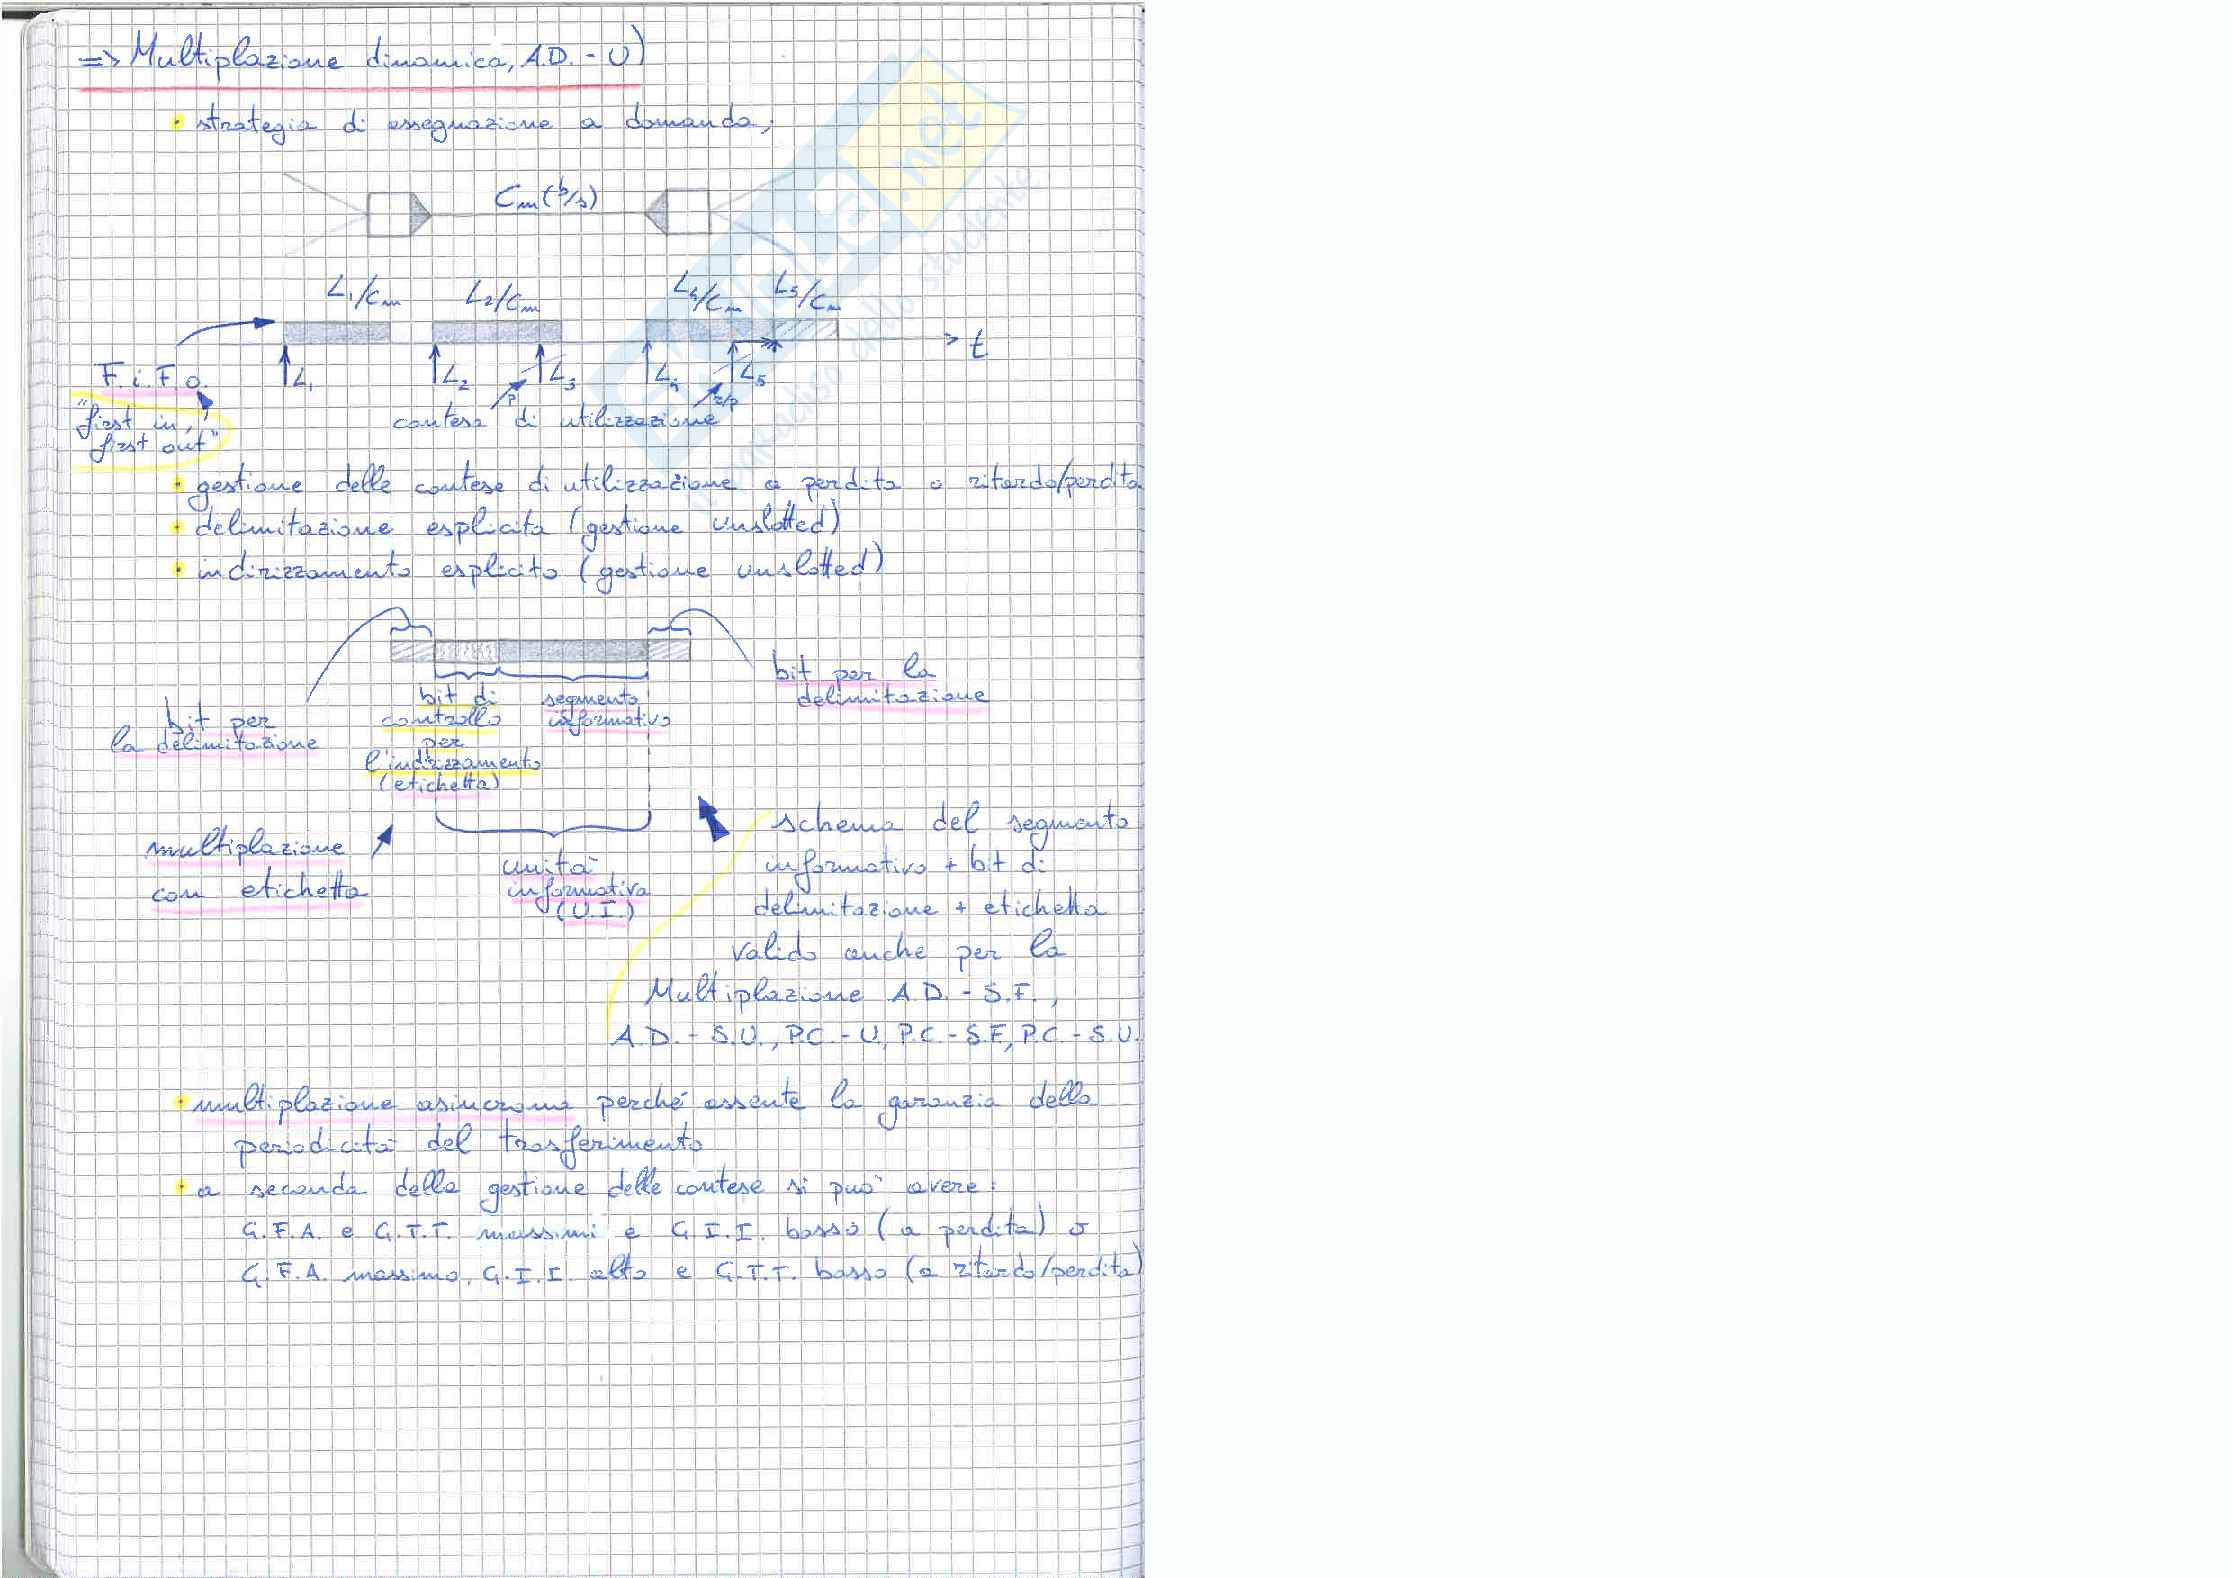 => Multiplazione dinamica, A.D. - U)
• strategia di assegnazione a domanda;
Cm (b/s)
L1/Cm L2/Cm L4/Cm L5/Cm
t
F.i.F.o. L1 L2 L3 L4 L5
p r/p
"first in, contesa di utilizzazione
first out"
• gestione delle contese di utilizzazione a perdita o ritardo/perdita
• delimitazione esplicita (gestione unslotted)
• indirizzamento esplicito (gestione unslotted)
bit per la
delimitazione
bit per
la delimitazione
bit di
controllo
per
l'indirizzamento
(etichetta)
segmento
informativo
multiplazione
con etichetta
unità
informativa
(U.I.)
schema del segmento
informativo + bit di
delimitazione + etichetta
valido anche per la
Multiplazione A.D. - S.F.,
A.D. - S.U., P.C. - U, P.C. - S.F, P.C. - S.U.
• multiplazione asincrona perché assente la garanzia della
periodicità del trasferimento
• a seconda della gestione delle contese si può avere:
G.F.A. e G.T.T. massimi e G.I.I. basso (a perdita) o
G.F.A. massimo, G.I.I. alto e G.T.T. basso (a ritardo/perdita)